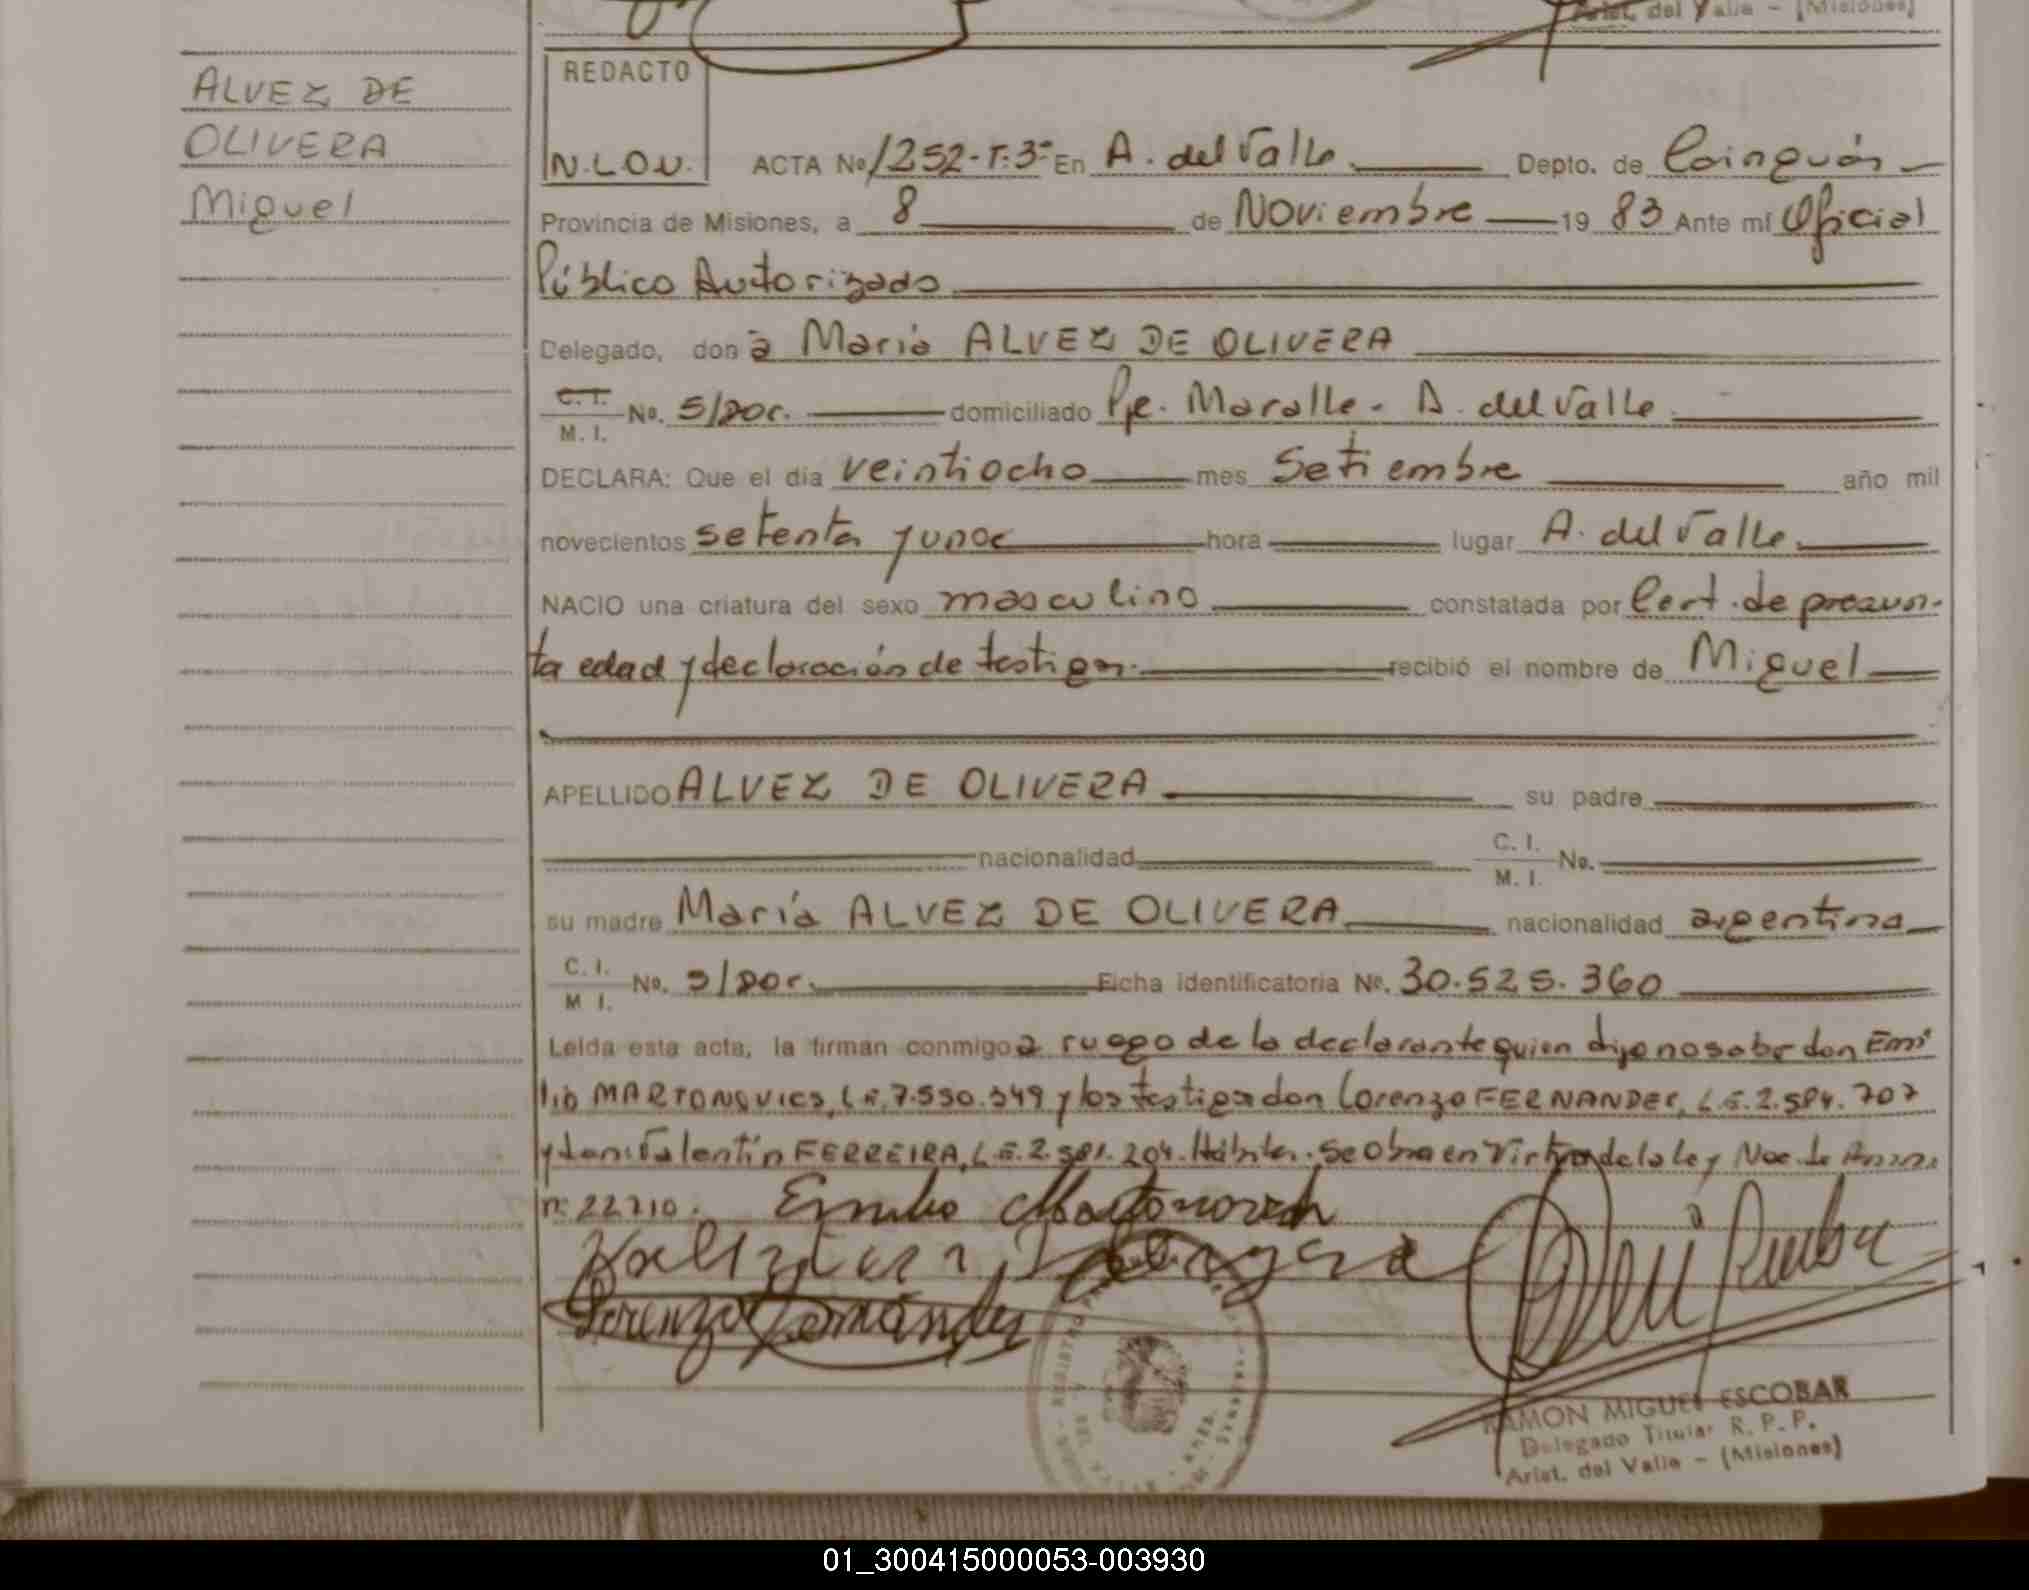 Arist. del Valle - (Misiones)
ALVEZ DE
OLIVERA
Miguel
REDACTO
N.L.O.V.
ACTA No 1252-T:3º En A. del Valle Depto. de Cainguás
Provincia de Misiones, a 8 de Noviembre 19 83 Ante mí Oficial
Público Autorizado
Delegado, don a María ALVEZ DE OLIVERA
C. I. M. I. No. S/Doc. domiciliado Pje. Maralle - A. del Valle
DECLARA: Que el día veintiocho mes Setiembre año mil
novecientos setenta y uno hora lugar A. del Valle
NACIO una criatura del sexo masculino constatada por Cert. de presun-
ta edad y declaración de testigos. recibió el nombre de Miguel
APELLIDO ALVEZ DE OLIVERA su padre
nacionalidad C. I. M. I. No.
su madre María ALVEZ DE OLIVERA nacionalidad argentina
C. I. M I. No. S/Doc. Ficha identificatoria No. 30.525.360
Leída esta acta, la firman conmigo a ruego de la declarante quien dijo no saber don Emi
lio L.E. 7.550.349 y los testigos don Lorenzo FERNANDEZ, L.E. 2.584.707
y don Valentín FERREIRA, L.E. 2.581.204. Hábiles. Se obra en Virtud de la ley Nac. de
nº 22710.
Emilio
Lorenzo Fernández
RAMON MIGUEL ESCOBAR
Delegado Titular R. P. P.
Arist. del Valle - (Misiones)
01_300415000053-003930